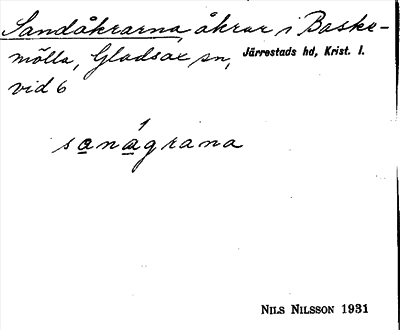 Sandåkrarna, åkrar i Baske-
mölla, Gladsax sn, Järrestads hd, Krist. l.
vid 6
sanágrana
NILS NILSSON 1931